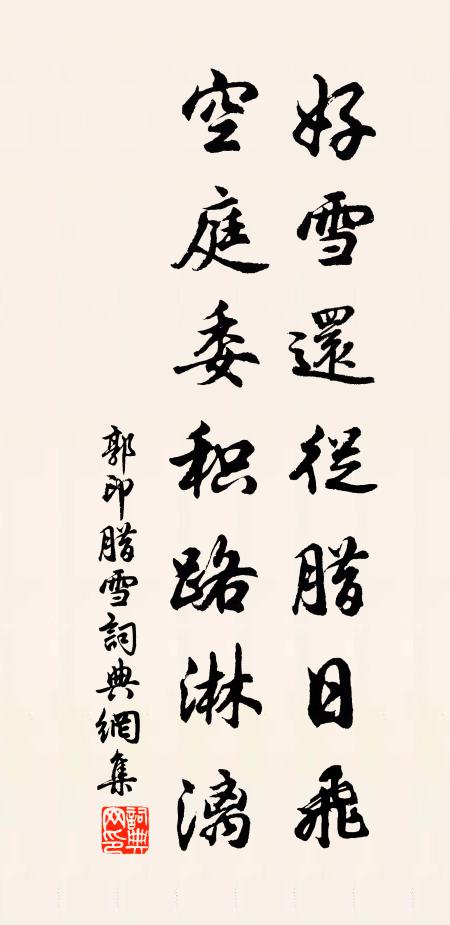 好雪還從腊日飛
空庭委积路淋漓
郭印腊雪詞典網集
詞典网印